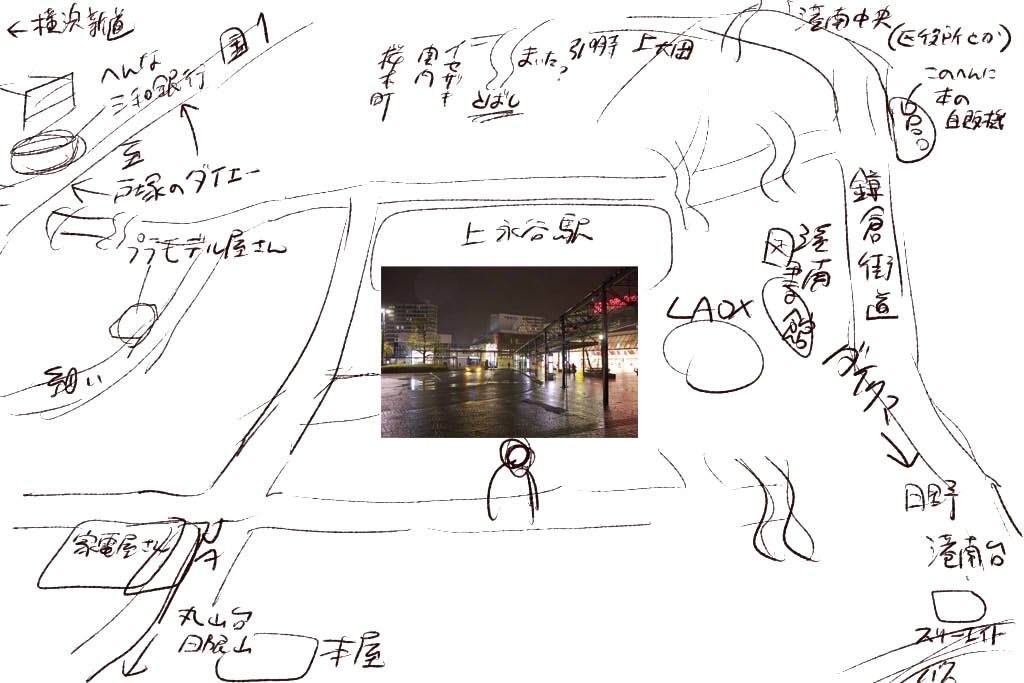 ←横浜新道
国1
へんな
三和銀行
至
戸塚のダイエー
プラモデル屋さん
細い
桜木町
関内
イセザキ
とばし
まいた?
弘明寺
上大岡
港南中央
(区役所とか)
このへんに
本の
自販機
鎌倉街道
上永谷駅
LAOX
港南
図書館
日野
港南台
家電屋さん
丸山台
日限山
本屋
バス